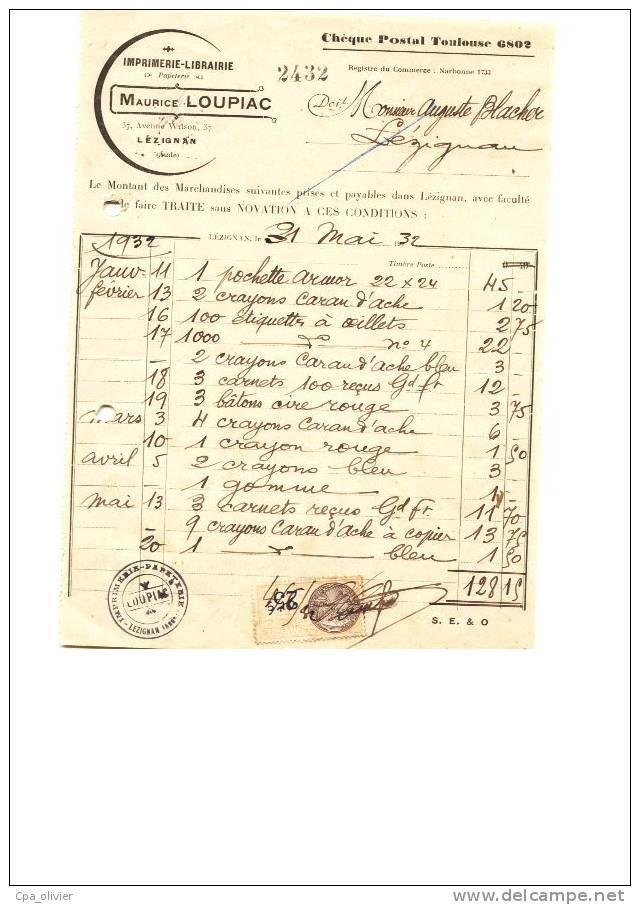 Chèque Postal Toulouse 6802
IMPRIMERIE-LIBRAIRIE
Papeterie
MAURICE LOUPIAC
37, Avenue Wilson, 37
LÉZIGNAN
(Aude)
2432
Registre du Commerce : Narbonne 1733
Doit Monsieur Auguste Blacher
Lézignan
Le Montant des Marchandises suivantes prises et payables dans Lézignan, avec faculté
de faire TRAITE sans NOVATION A CES CONDITIONS :
1932 LÉZIGNAN, le 31 Mai 32
Timbre Poste
Janv- 11 1 pochette Armor 22 x 24 45 -
février 13 2 crayons Caran d'ache 1 20
16 100 étiquettes à œillets 2 75
17 1000 n° 4 22 -
- 2 crayons Caran d'ache bleu 3 -
18 3 carnets 100 reçus Gd ft 12 -
19 3 bâtons cire rouge 3 75
mars 3 4 crayons Caran d'ache 6 -
10 1 crayon rouge 1 50
avril 5 2 crayons bleu 3 -
- 1 gomme 1 -
mai 13 3 carnets reçus Gd ft 11 70
- 9 crayons Caran d'ache à copier 13 75
20 1 bleu 1 50
128 15
IMPRIMERIE-PAPETERIE
LOUPIAC
LEZIGNAN
S. E. & O
Cpa_olivier
delcampe.net